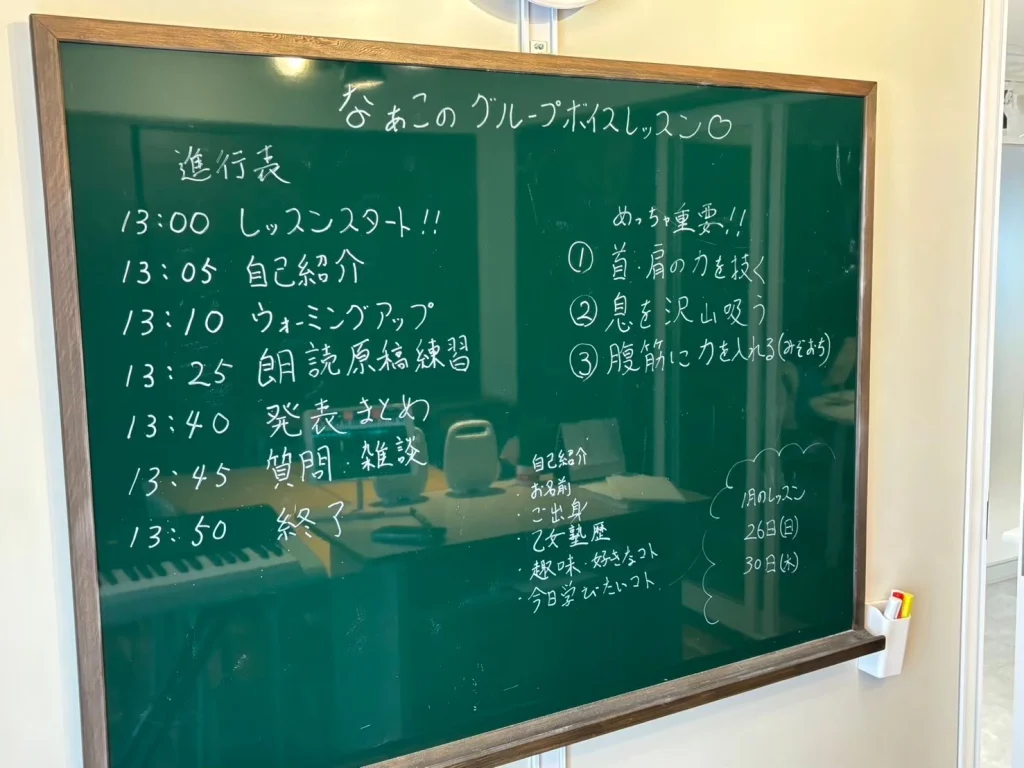 なぁこの グループボイスレッスン♡
進行表
13:00 レッスンスタート!!
13:05 自己紹介
13:10 ウォーミングアップ
13:25 朗読原稿練習
13:40 発表 まとめ
13:45 質問・雑談
13:50 終了
めっちゃ重要!!
① 首・肩の力を抜く
② 息を沢山吸う
③ 腹筋に力を入れる(みぞおち)
自己紹介
・お名前
・ご出身
・乙女塾歴
・趣味・好きなコト
・今日学びたいコト
1月のレッスン
26日(日)
30日(木)